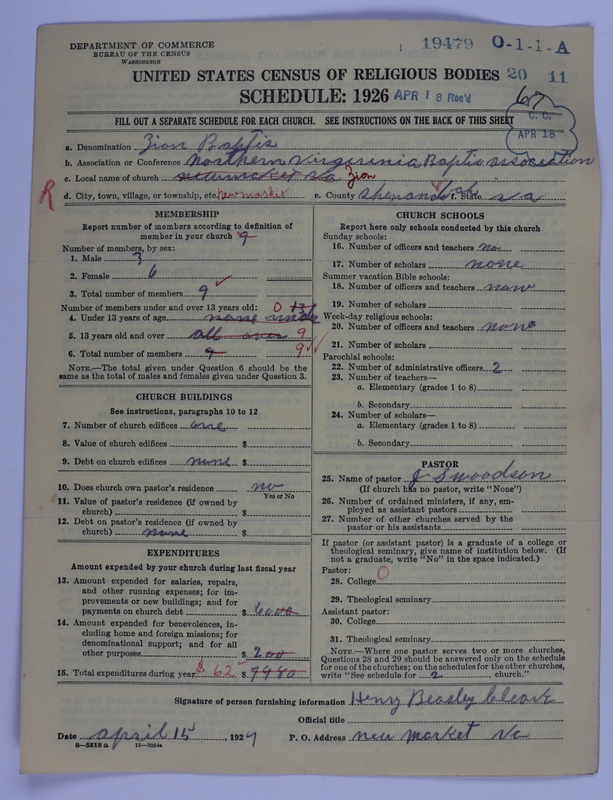 DEPARTMENT OF COMMERCE
BUREAU OF THE CENSUS
WASHINGTON
19479 O-1-1-A
UNITED STATES CENSUS OF RELIGIOUS BODIES 20 11
SCHEDULE: 1926 APR 18 Rec'd 67
FILL OUT A SEPARATE SCHEDULE FOR EACH CHURCH. SEE INSTRUCTIONS ON THE BACK OF THIS SHEET
C. C.
APR 18
a. Denomination Zion Baptis
b. Association or Conference Northern Virginia Baptis association
c. Local name of church newmarket Va Zion
R
d. City, town, village, or township, etc. New market e. County Shenandoah f. State Va
MEMBERSHIP
Report number of members according to definition of
member in your church 9
Number of members, by sex:
1. Male 3
2. Female 6
3. Total number of members 9
Number of members under and over 13 years old:
4. Under 13 years of age none under 0
5. 13 years old and over all over 9
6. Total number of members 9 9
NOTE.—The total given under Question 6 should be
the same as the total of males and females given under Question 3.
CHURCH BUILDINGS
See instructions, paragraphs 10 to 12
7. Number of church edifices one
8. Value of church edifices $
9. Debt on church edifices none $
10. Does church own pastor's residence no
Yes or No
11. Value of pastor's residence (if owned by
church) $
12. Debt on pastor's residence (if owned by
church) none $
EXPENDITURES
Amount expended by your church during last fiscal year
13. Amount expended for salaries, repairs,
and other running expenses; for im-
provements or new buildings; and for
payments on church debt $ 6000
14. Amount expended for benevolences, in-
cluding home and foreign missions; for
denominational support; and for all
other purposes $ 200
15. Total expenditures during year $ 62 $
CHURCH SCHOOLS
Report here only schools conducted by this church
Sunday schools:
16. Number of officers and teachers no
17. Number of scholars none
Summer vacation Bible schools:
18. Number of officers and teachers
19. Number of scholars
Week-day religious schools:
20. Number of officers and teachers none
21. Number of scholars
Parochial schools:
22. Number of administrative officers 2
23. Number of teachers—
a. Elementary (grades 1 to 8)
b. Secondary
24. Number of scholars—
a. Elementary (grades 1 to 8)
b. Secondary
PASTOR
25. Name of pastor J S woodson
(If church has no pastor, write "None")
26. Number of ordained ministers, if any, em-
ployed as assistant pastors
27. Number of other churches served by the
pastor or his assistants
If pastor (or assistant pastor) is a graduate of a college or
theological seminary, give name of institution below. (If
not a graduate, write "No" in the space indicated.)
Pastor:
28. College 0
29. Theological seminary
Assistant pastor:
30. College
31. Theological seminary
NOTE.—Where one pastor serves two or more churches,
Questions 28 and 29 should be answered only on the schedule
for one of the churches; on the schedules for the other churches,
write "See schedule for 2 church."
Signature of person furnishing information Henry Beasley
Official title
Date april 15, 1927 P. O. Address new market Va
8—5518a 11—9034a